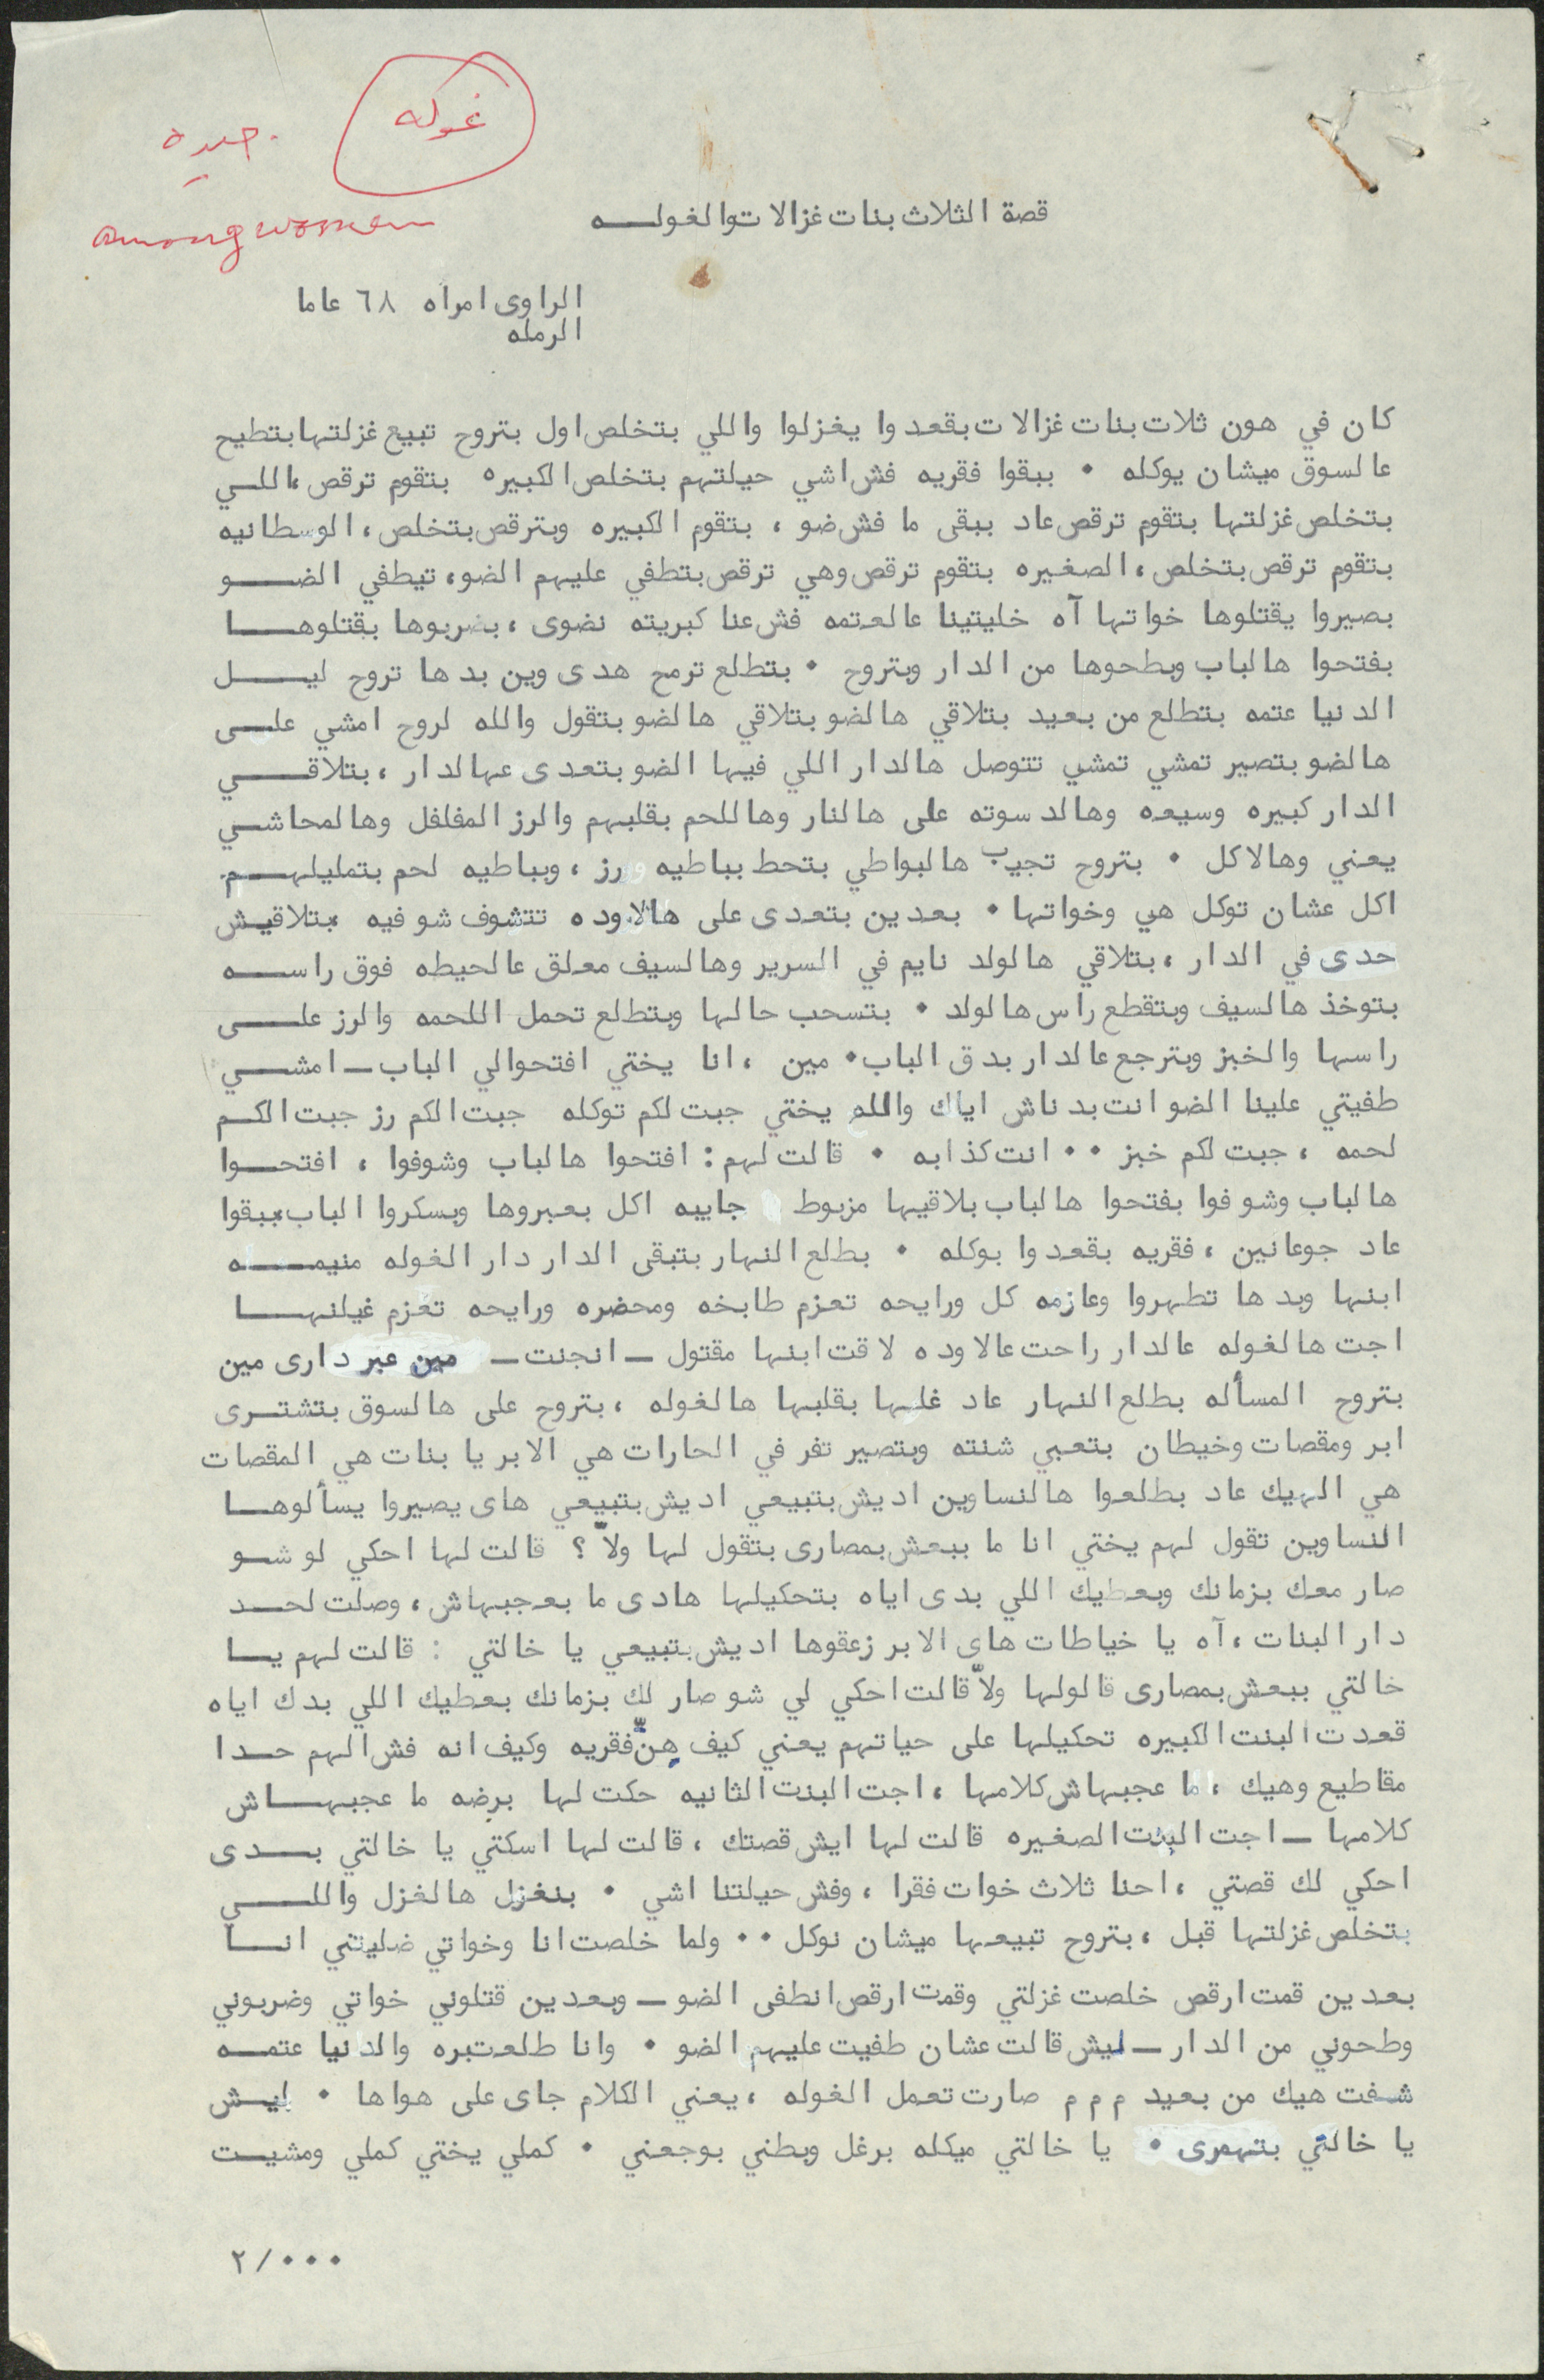 غوله
جيده
among women
قصة الثلاث بنات غزالات والغوله
الراوى امراه ٦٨ عاما
الرمله
كان في هون ثلاث بنات غزالات بقعدوا يغزلوا واللي بتخلص اول بتروح تبيع غزلتها بتطيح
عالسوق ميشان يوكله ٠ ببقوا فقريه فش اشي حيلتهم بتخلص الكبيره بتقوم ترقص ، اللي
بتخلص غزلتها بتقوم ترقص عاد ببقى ما فش ضو ، بتقوم الكبيره وبترقص بتخلص ، الوسطانيه
بتقوم ترقص بتخلص ، الصغيره بتقوم ترقص وهي ترقص بتطفي عليهم الضو ، تيطفي الضو
بصيروا يقتلوها خواتها آه خليتينا عالعتمه فش عنا كبريته نضوى ، بضربوها بقتلوها
بفتحوا هالباب وبطحوها من الدار وبتروح ٠ بتطلع ترمح هدى وين بدها تروح ليل
الدنيا عتمه بتطلع من بعيد بتلاقي هالضو بتلاقي هالضو بتقول والله لروح امشي على
هالضو بتصير تمشي تمشي تتوصل هالدار اللي فيها الضو بتعدى عهالدار ، بتلاقي
الدار كبيره وسيعه وهالدسوته على هالنار وهاللحم بقلبهم والرز المفلفل وهالمحاشي
يعني وهالاكل ٠ بتروح تجيب هالبواطي بتحط بباطيه رز ، وبباطيه لحم بتمليلهم
اكل عشان توكل هي وخواتها ٠ بعدين بتعدى على هالاوده تتشوف شو فيه بتلاقيش
حدى في الدار ، بتلاقي هالولد نايم في السرير وهالسيف معلق عالحيطه فوق راسه
بتوخذ هالسيف وبتقطع راس هالولد ٠ بتسحب حالها وبتطلع تحمل اللحمه والرز على
راسها والخبز وبترجع عالدار بدق الباب ٠ مين ، انا يختي افتحوالي الباب ـ امشي
طفيتي علينا الضو انت بدناش اياك والله يختي جبت لكم توكله جبت الكم رز جبت الكم
لحمه ، جبت لكم خبز ٠٠ انت كذابه ٠ قالت لهم : افتحوا هالباب وشوفوا ، افتحوا
هالباب وشوفوا بفتحوا هالباب بلاقيها مزبوط جاييه اكل بعبروها وبسكروا الباب ببقوا
عاد جوعانين ، فقريه بقعدوا بوكله ٠ بطلع النهار بتبقى الدار دار الغوله منيمه
ابنها وبدها تطهروا وعازمه كل ورايحه تعزم طابخه ومحضره ورايحه تعزم غيلنها
اجت هالغوله عالدار راحت عالاوده لاقت ابنها مقتول ـ انجنت ـ مين عبر دارى مين
بتروح المسأله بطلع النهار عاد غلها بقلبها هالغوله ، بتروح على هالسوق بتشترى
ابر ومقصات وخيطان بتعبي شنته وبتصير تفر في الحارات هي الابر يا بنات هي المقصات
هي الهيك عاد بطلعوا هالنساوين اديش بتبيعي اديش بتبيعي هاى يصيروا يسألوها
النساوين تقول لهم يختي انا ما ببعش بمصارى بتقول لها ولاّ ؟ قالت لها احكي لو شو
صار معك بزمانك وبعطيك اللي بدى اياه بتحكيلها هادى ما بعجبهاش ، وصلت لحد
دار البنات ، آه يا خياطات هاى الابر زعقوها اديش بتبيعي يا خالتي : قالت لهم يا
خالتي ببعش بمصارى قالولها ولاّ قالت احكي لي شو صار لك بزمانك بعطيك اللي بدك اياه
قعدت البنت الكبيره تحكيلها على حياتهم يعني كيف هنّ فقريه وكيف انه فش الهم حدا
مقاطيع وهيك ، ما عجبهاش كلامها ، اجت البنت الثانيه حكت لها برضه ما عجبهاش
كلامها ـ اجت البنت الصغيره قالت لها ايش قصتك ، قالت لها اسكتي يا خالتي بدى
احكي لك قصتي ، احنا ثلاث خوات فقرا ، وفش حيلتنا اشي ٠ بنغزل هالغزل واللي
بتخلص غزلتها قبل ، بتروح تبيعها ميشان نوكل ٠٠ ولما خلصت انا وخواتي ضليتني انا
بعدين قمت ارقص خلصت غزلتي وقمت ارقص انطفى الضو ـ وبعدين قتلوني خواتي وضربوني
وطحوني من الدار ـ ليش قالت عشان طفيت عليهم الضو ٠ وانا طلعت بره والدنيا عتمه
شفت هيك من بعيد م م م صارت تعمل الغوله ، يعني الكلام جاى على هواها ٠ ليش
يا خالتي بتهمرى ٠ يا خالتي ميكله برغل وبطني بوجعني ٠ كملي يختي كملي ومشيت
٢/٠٠٠